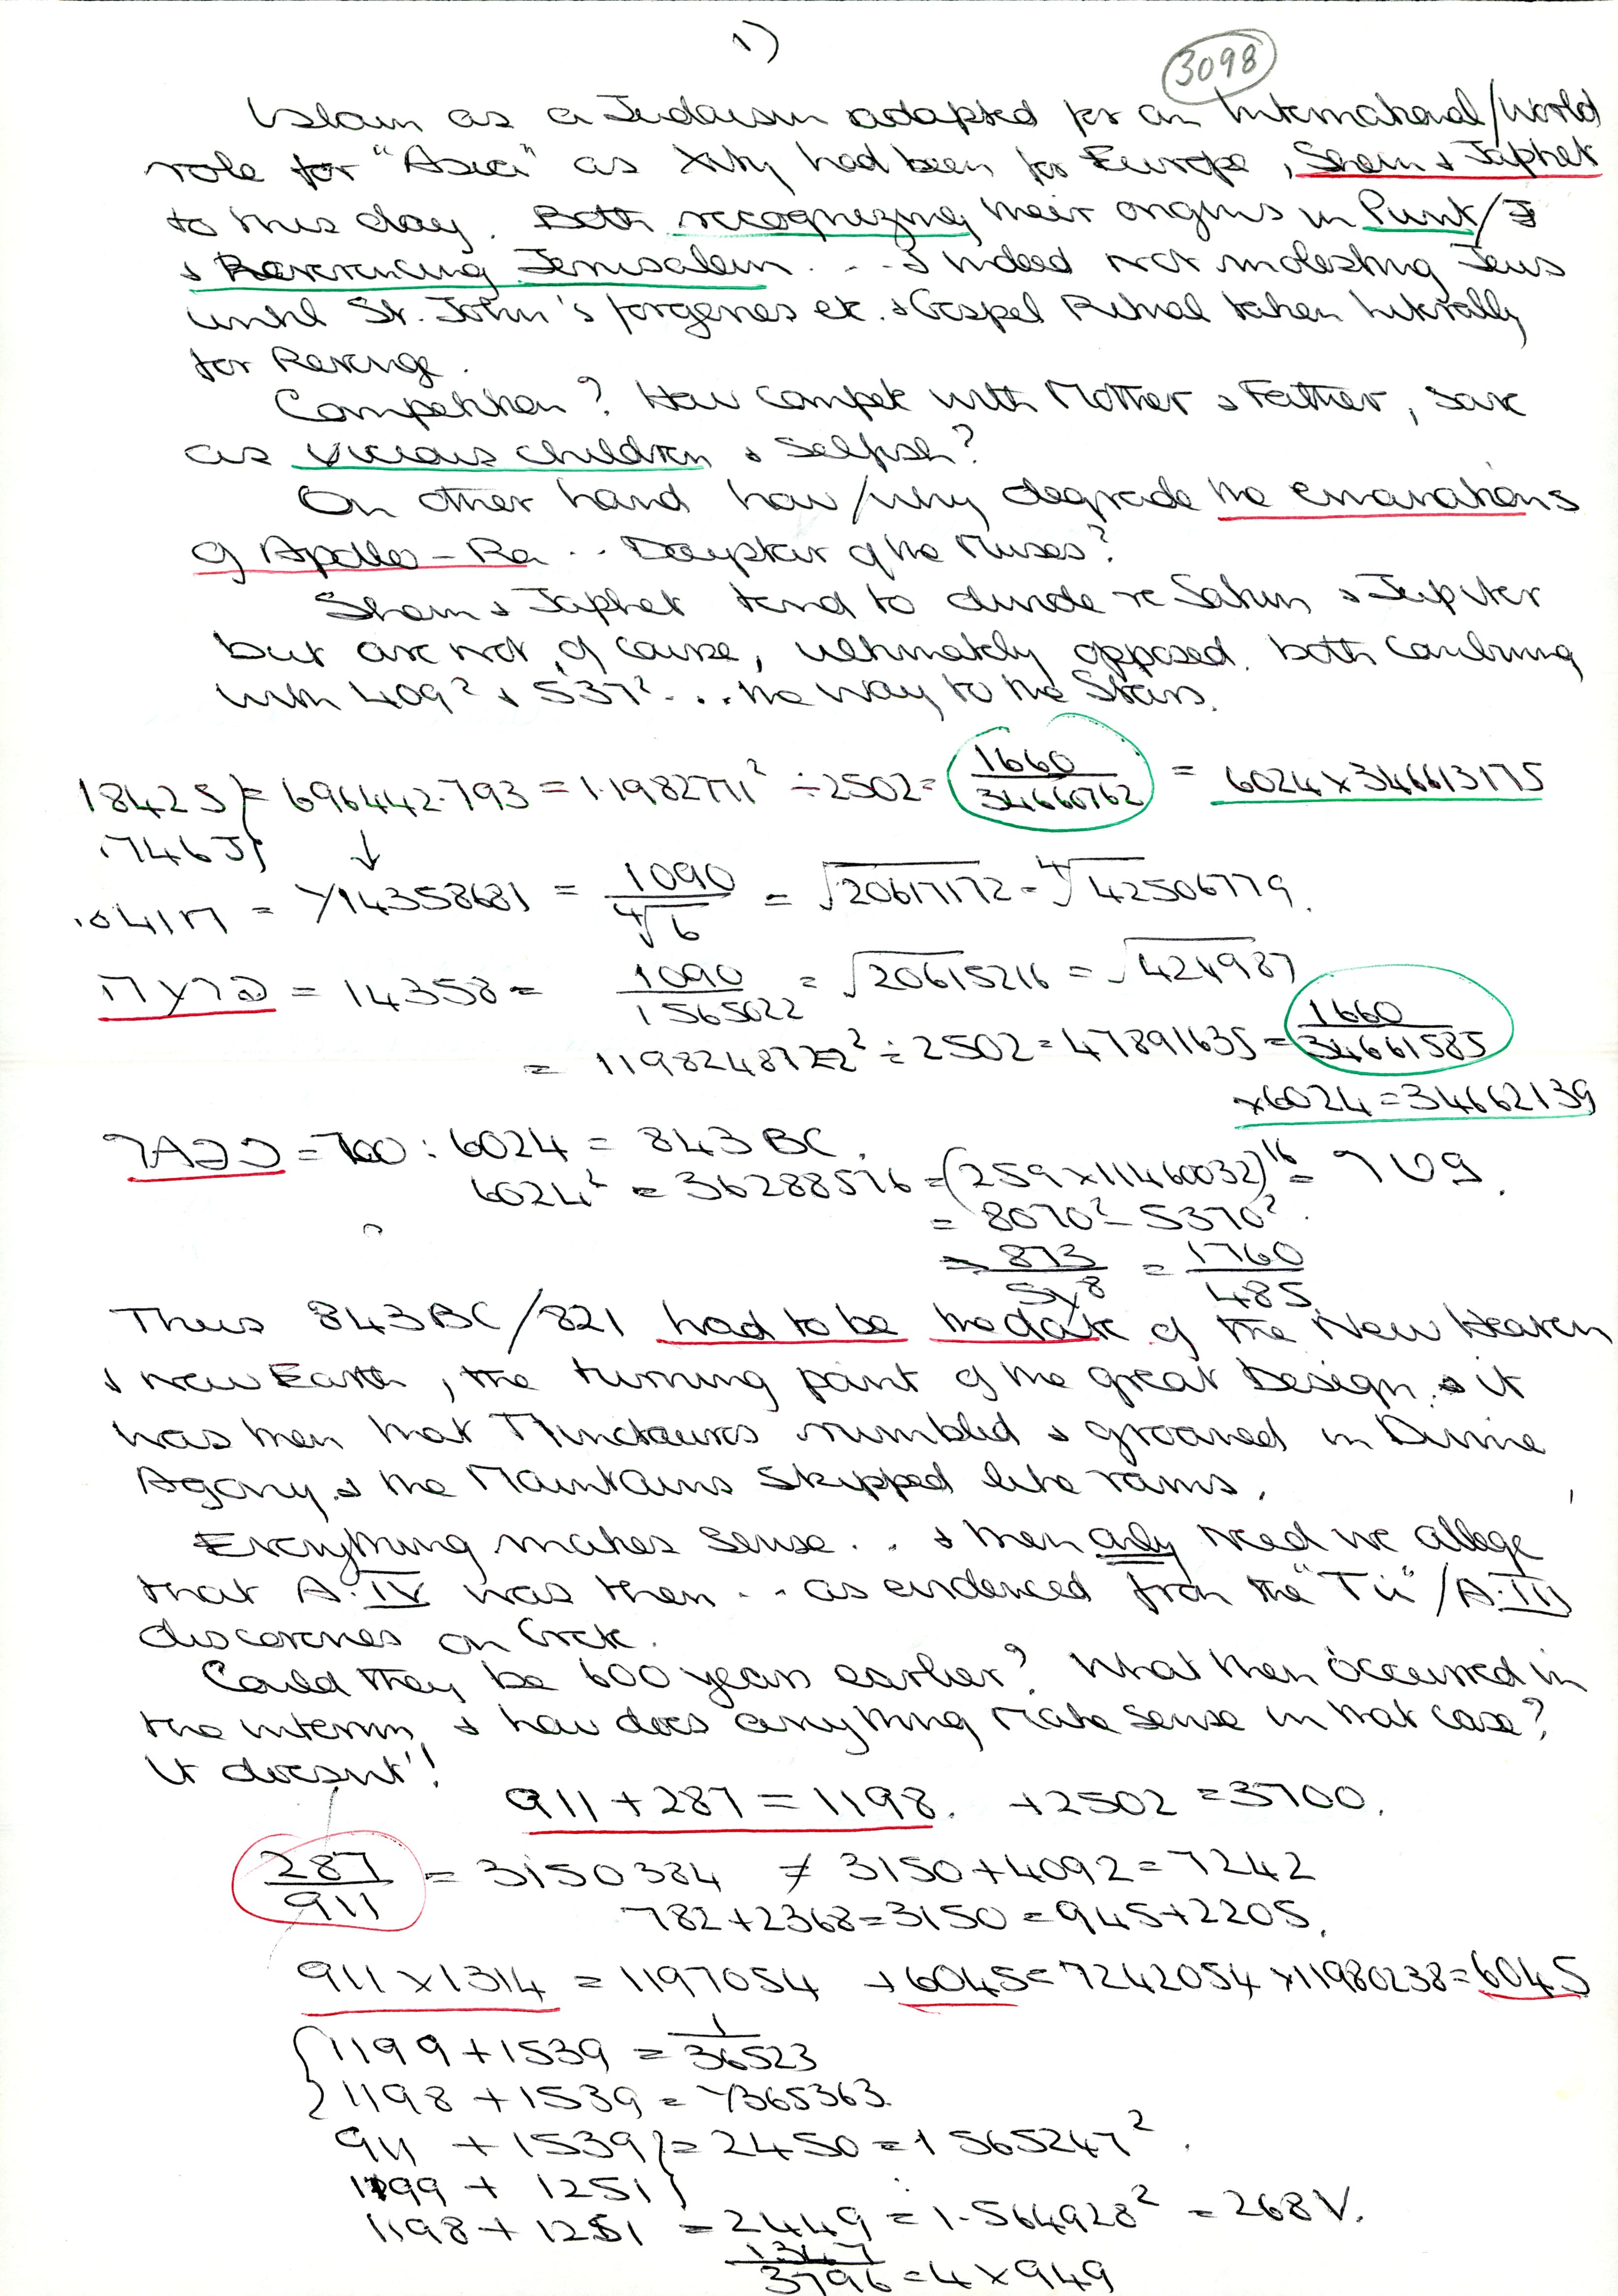 1)
3098
Islam as a Judaism adapted for an International/World
role for "Asia" as Xity had been for Europe, Shem & Japhet
to this day. Both recognizing their origins in Punt/J
& Reverencing Jerusalem... & indeed not molesting Jews
until St. John's forgeries etc. & Gospel Ritual taken literally
for Revenge.
Competition? How compete with Mother & Father, save
as vicious children & selfish?
On other hand how/why degrade the emanations
of Apollo-Ra... of the Muses?
Shem & Japhet tend to divide re Saturn & Jupiter
but are not, of course, ultimately opposed, both combining
with 409² & 537²... the way to the Stars.
1842 S } = 696442.793 = 1.1982771² ÷ 2502 = 1660/34660762 = 6024 x 346613175
.746 J } ↓
= 1/14358681 = 1090/∜6 = √20617172 = ∜42506779.
= 14358 = 1090/1565022 = √20615216 = √424987
= 119824872² ÷ 2502 = 47891635 = 1660/34661585
x6024 = 34662139
= 700 : 6024 = 843 BC.
6024² = 36288576 = (259 x 11460032)¹⁶ =
= 8070² - 5370².
= 873/ = 1760/485
Thus 843 BC/821 had to be the date of the New Heaven
& new Earth, the turning point of the great Design, & it
was then that Minotauros rumbled & groaned in Divine
Agony & the Mountains skipped like rams.
Everything makes sense... & then only need we allege
that A.IV was then... as evidenced from the "Tii"/A.III
discoveries on Crete.
Could they be 600 years earlier? What then occurred in
the interim, & how does anything make sense in that case?
It doesn't!
911 + 287 = 1198. +2502 = 3700.
287/911 = 3150384 ≠ 3150 + 4092 = 7242
782 + 2368 = 3150 = 945 + 2205.
911 x 1314 = 1197054 + 6045 = 7242054 x 11980238 = 6045
{ 1199 + 1539 = 1/36523
1198 + 1539 = 1/365363
911 + 1539 } = 2450 = 1565247².
1199 + 1251 }
1198 + 1251 = 2449 = 1.564928² = 268 V.
1347
3796 = 4 x 949